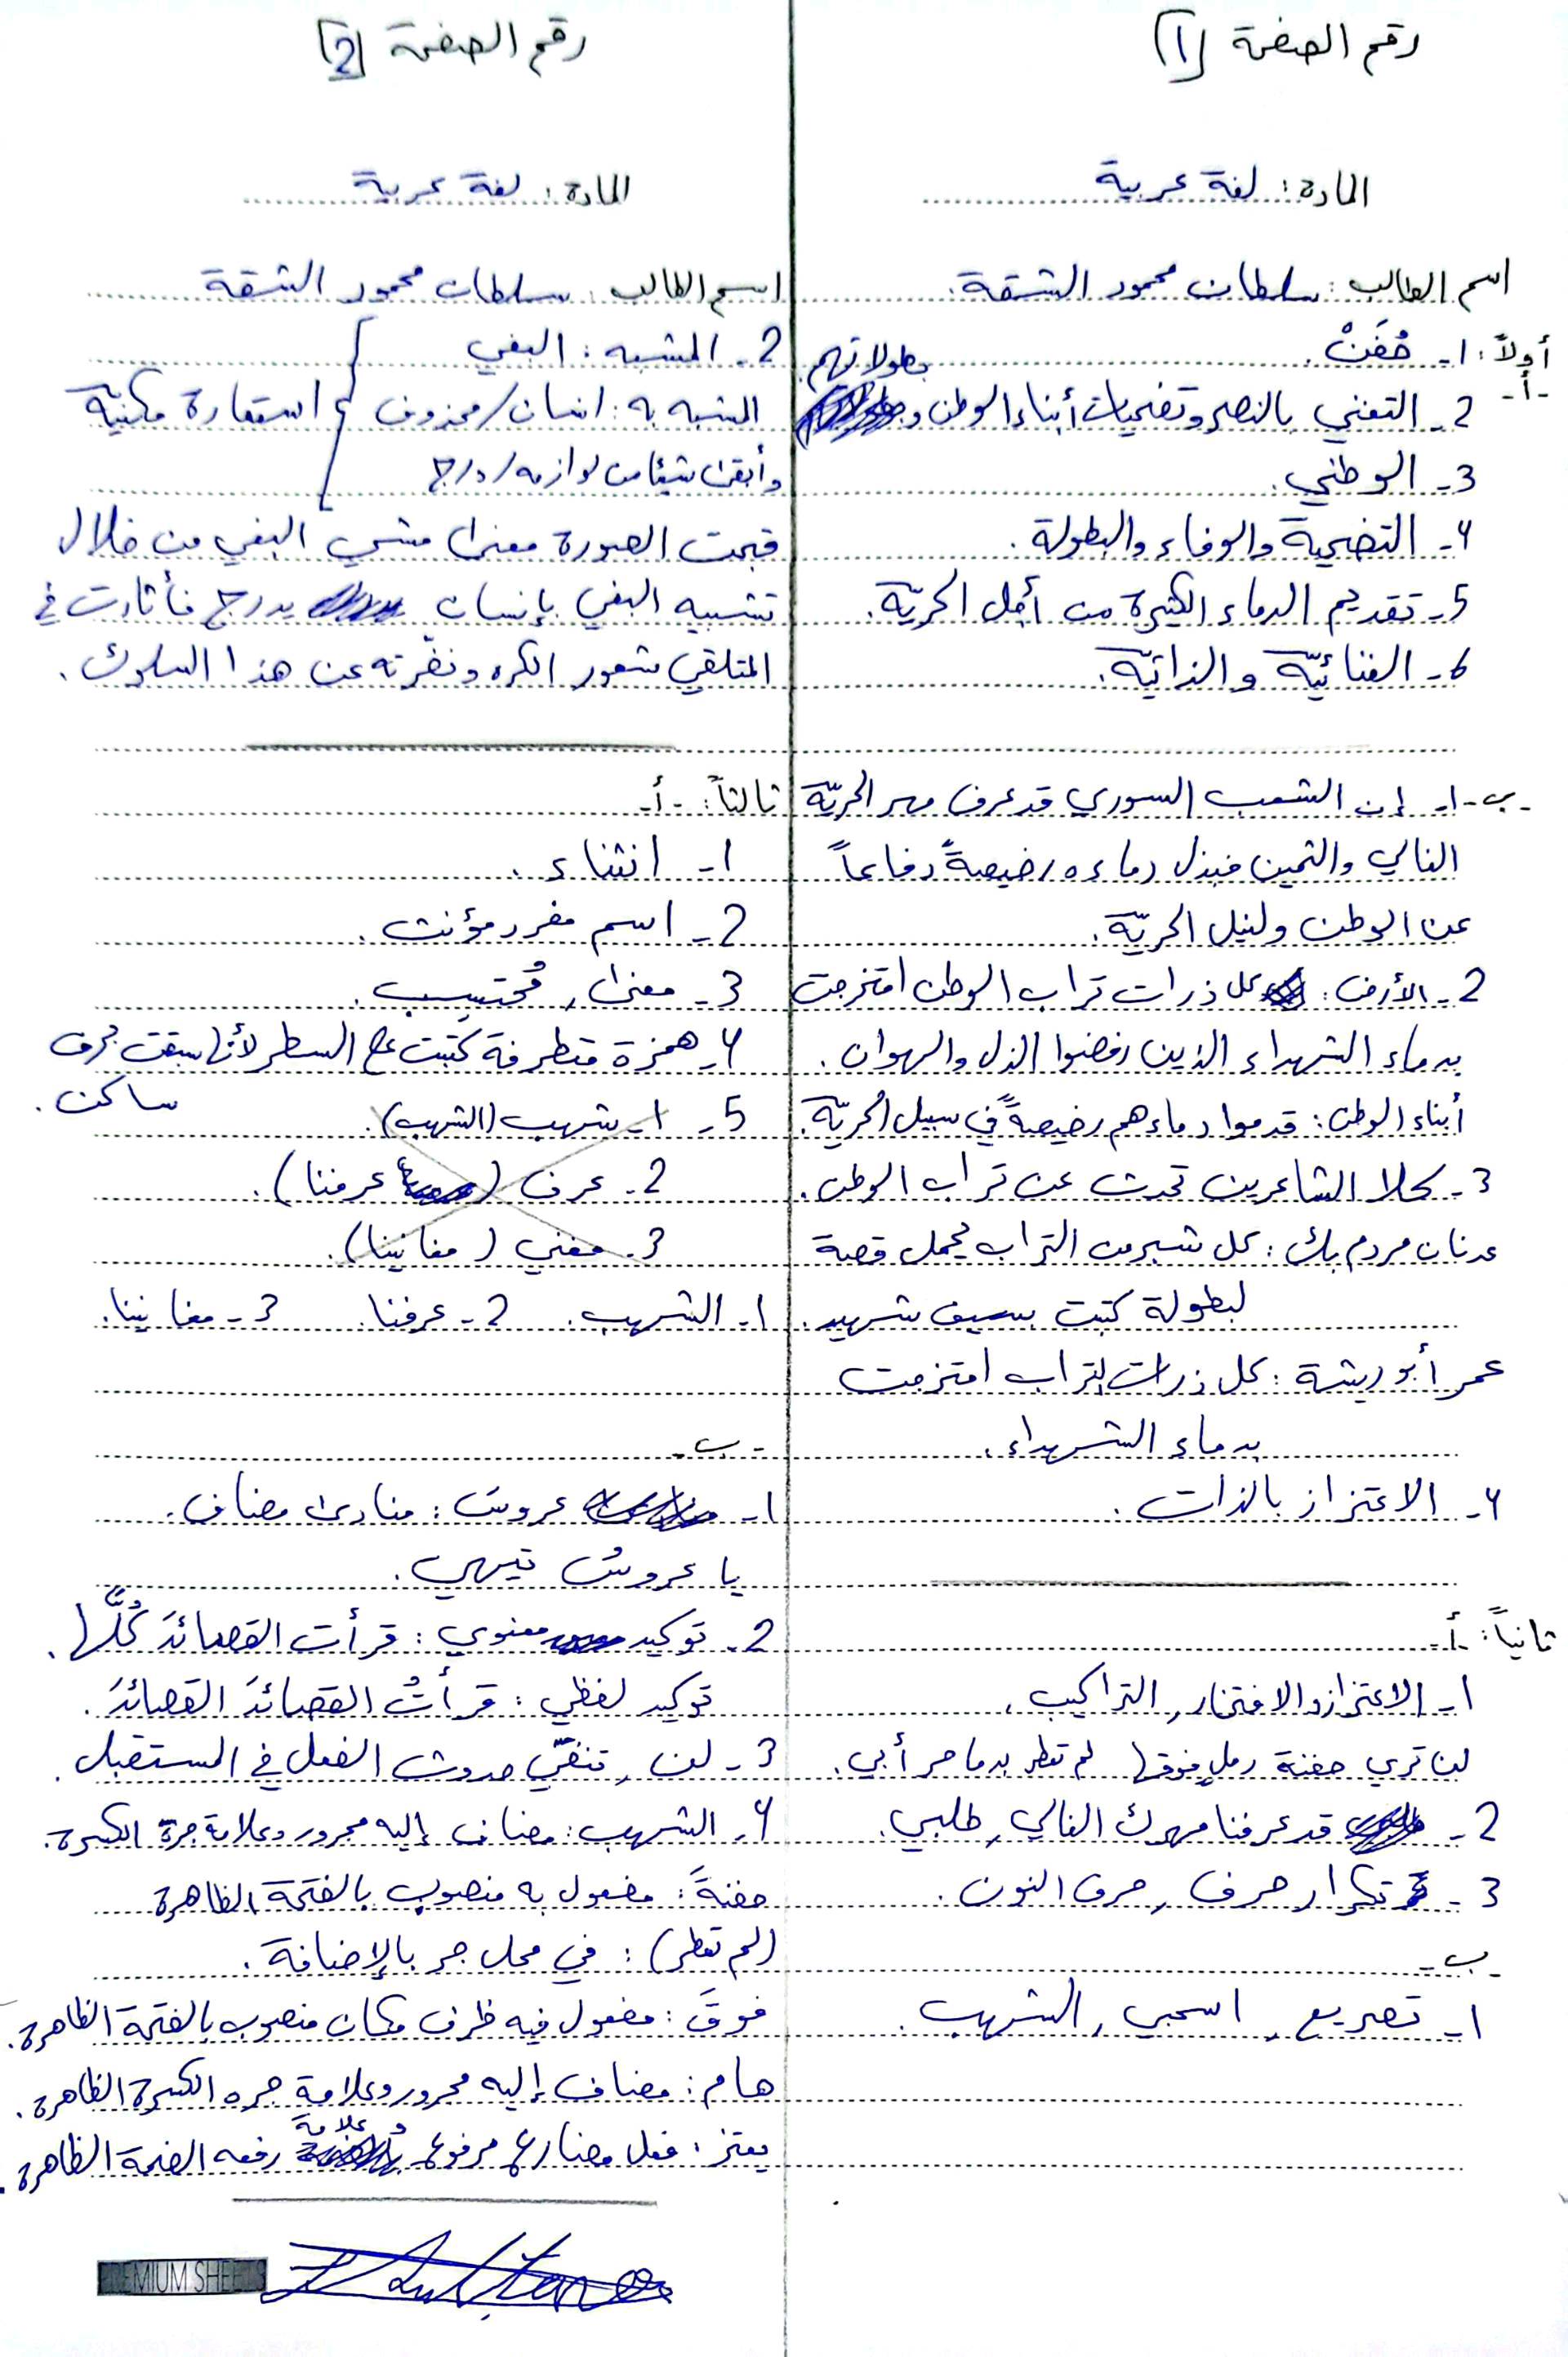 رقم الصفحة (1)
المادة: لغة عربية
اسم الطالب: سلطان محمود الشقة.
أولاً: 1- حُفَنْ.
-أ-
بطولاتهم
2- التغني بالنصر وتضحيات أبناء الوطن و
3- الوطني.
4- التضحية والوفاء والبطولة.
5- تقديم الدماء الكثيرة من أجل الحريّة.
6- الغنائيّة والذاتيّة.
-ب- 1- إن الشعب السوري قد عرف مهر الحريّة
الغالي والثمين فبذل دماءه رخيصةً دفاعاً
عن الوطن ولنيل الحريّة.
2- الأرض: كل ذرات تراب الوطن امتزجت
بدماء الشهداء الذين رفضوا الذل والهوان.
أبناء الوطن: قدموا دماءهم رخيصةً في سبيل الحريّة.
3- كلا الشاعرين تحدث عن تراب الوطن.
عدنان مردم بك: كل شبر من التراب يحمل قصة
لبطولة كتبت بسيف شهيد.
عمر أبو ريشة: كل ذرات التراب امتزجت
بدماء الشهداء.
4- الاعتزاز بالذات.
ثانياً: -أ-
1- الاعتزاز والافتخار, التراكيب,
لن تري حفنة رملٍ فوقها لم تعطر بدما حر أبي.
2- قد عرفنا مهرك الغالي, طلبي.
3- تكرار حرف, حرف النون.
-ب-
1- تصريع, اسحبي, الشهب.
رقم الصفحة (2)
المادة: لغة عربية
اسم الطالب: سلطان محمود الشقة
2- المشبه: البغي
المشبه به: انسان/محذوف } استعارة مكنيّة
وأبقى شيئا من لوازمه/درج
قبحت الصورة معنى مشي البغي من خلال
تشبيه البغي بإنسان يدرج فأثارت في
المتلقي شعور الكره ونفرته عن هذا السلوك.
ثالثاً: -أ-
1- انثناء.
2- اسم مفرد مؤنث.
3- معنى, مُحتسِب.
4- همزة متطرفة كُتبت على السطر لأنها سبقت بحرف
ساكن.
5- 1- شهب (الشهب).
2- عرف (عرفنا).
3- مغني (مغانينا).
1- الشهب. 2- عرفنا. 3- مغانينا.
-ب-
1- عروسَ: منادى مضاف.
يا عروسُ تيهي.
2- توكيد معنوي: قرأت القصائدَ كُلَّها.
توكيد لفظي: قرأتُ القصائدَ القصائدَ.
3- لن, تنفيّ حدوث الفعل في المستقبل.
4- الشهب: مضاف إليه مجرور وعلامة جرة الكسرة.
حفنةَ: مفعول به منصوب بالفتحة الظاهرة
(لم تعطر): في محل جر بالإضافة.
فوقَ: مفعول فيه ظرف مكان منصوب بالفتحة الظاهرة.
هام: مضاف إليه مجرور وعلامة جره الكسرة الظاهرة.
يعتز: فعل مضارع مرفوع وعلامة رفعه الضمة الظاهرة.
PREMIUM SHEETS